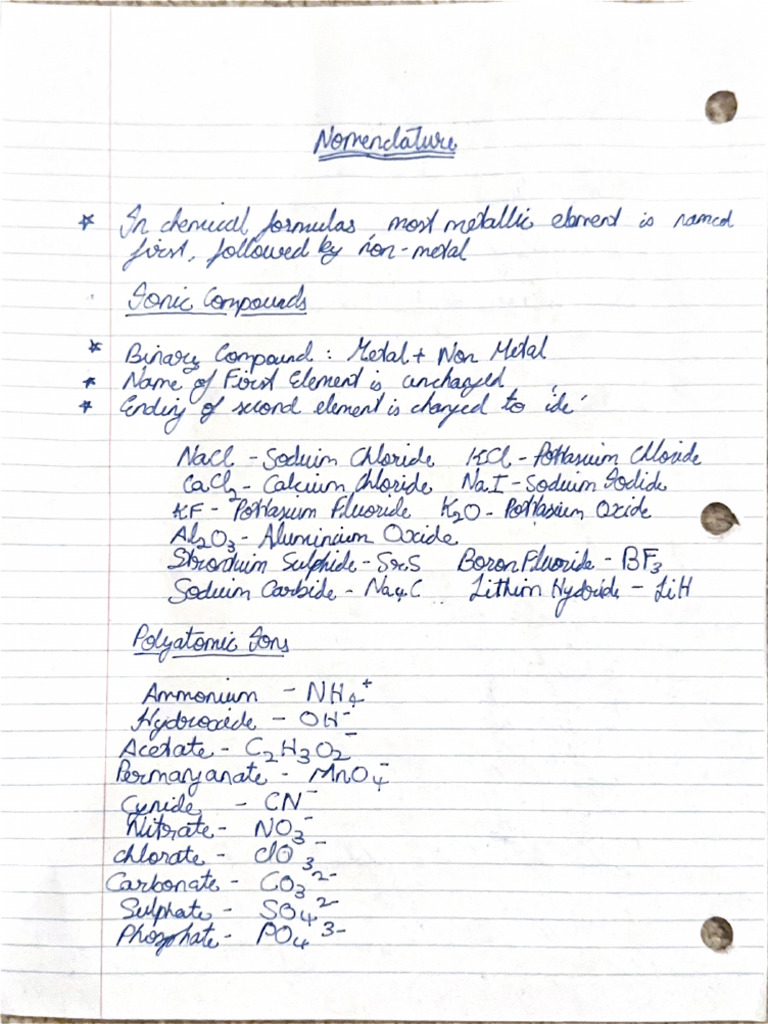 Nomenclature
* In chemical formulas, most metallic element is named
first, followed by non-metal
Ionic Compounds
* Binary Compound : Metal + Non Metal
* Name of First Element is unchanged
* Ending of second element is changed to 'ide'
NaCl - Sodium Chloride KCl - Pottasium Chloride
CaCl₂ - Calcium Chloride NaI - Sodium Iodide
KF - Pottasium Fluoride K₂O - Pottasium Oxide
Al₂O₃ - Aluminium Oxide
Strontium Sulphide - SrS Boron Fluoride - BF₃
Sodium Carbide - Na₄C Lithium Hydride - LiH
Polyatomic Ions
Ammonium - NH₄⁺
Hydroxide - OH⁻
Acetate - C₂H₃O₂⁻
Permanganate - MnO₄⁻
Cynide - CN⁻
Nitrate - NO₃⁻
chlorate - ClO₃⁻
Carbonate - CO₃²⁻
Sulphate - SO₄²⁻
Phosphate - PO₄³⁻